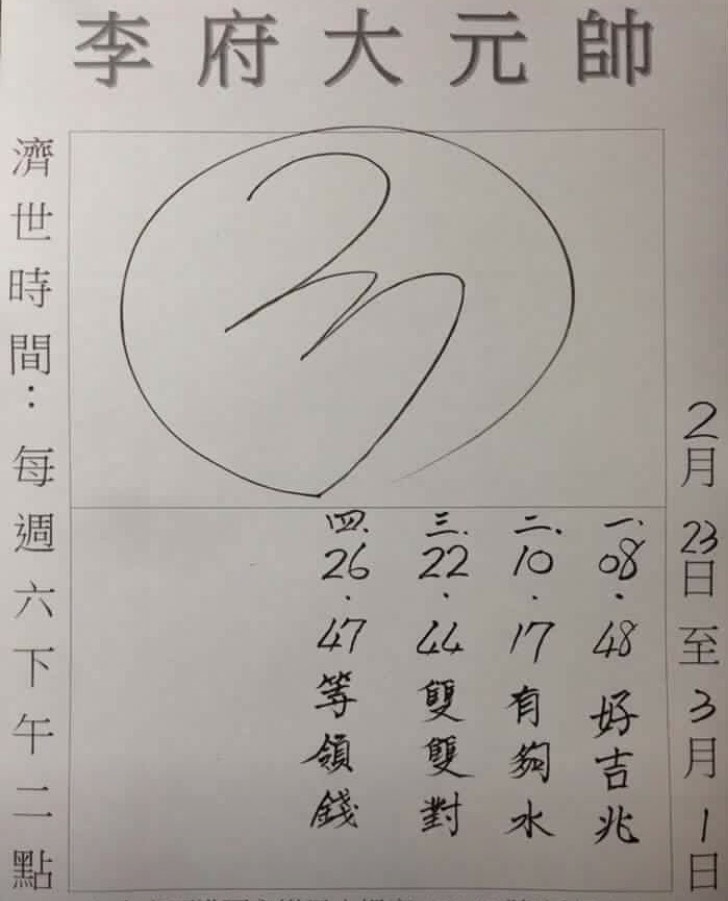 李府大元帥
2月23日至3月1日
一、08．48好吉兆
二、10．17有夠水
三、22．44雙雙對
四、26．47等領錢
濟世時間：每週六下午二點